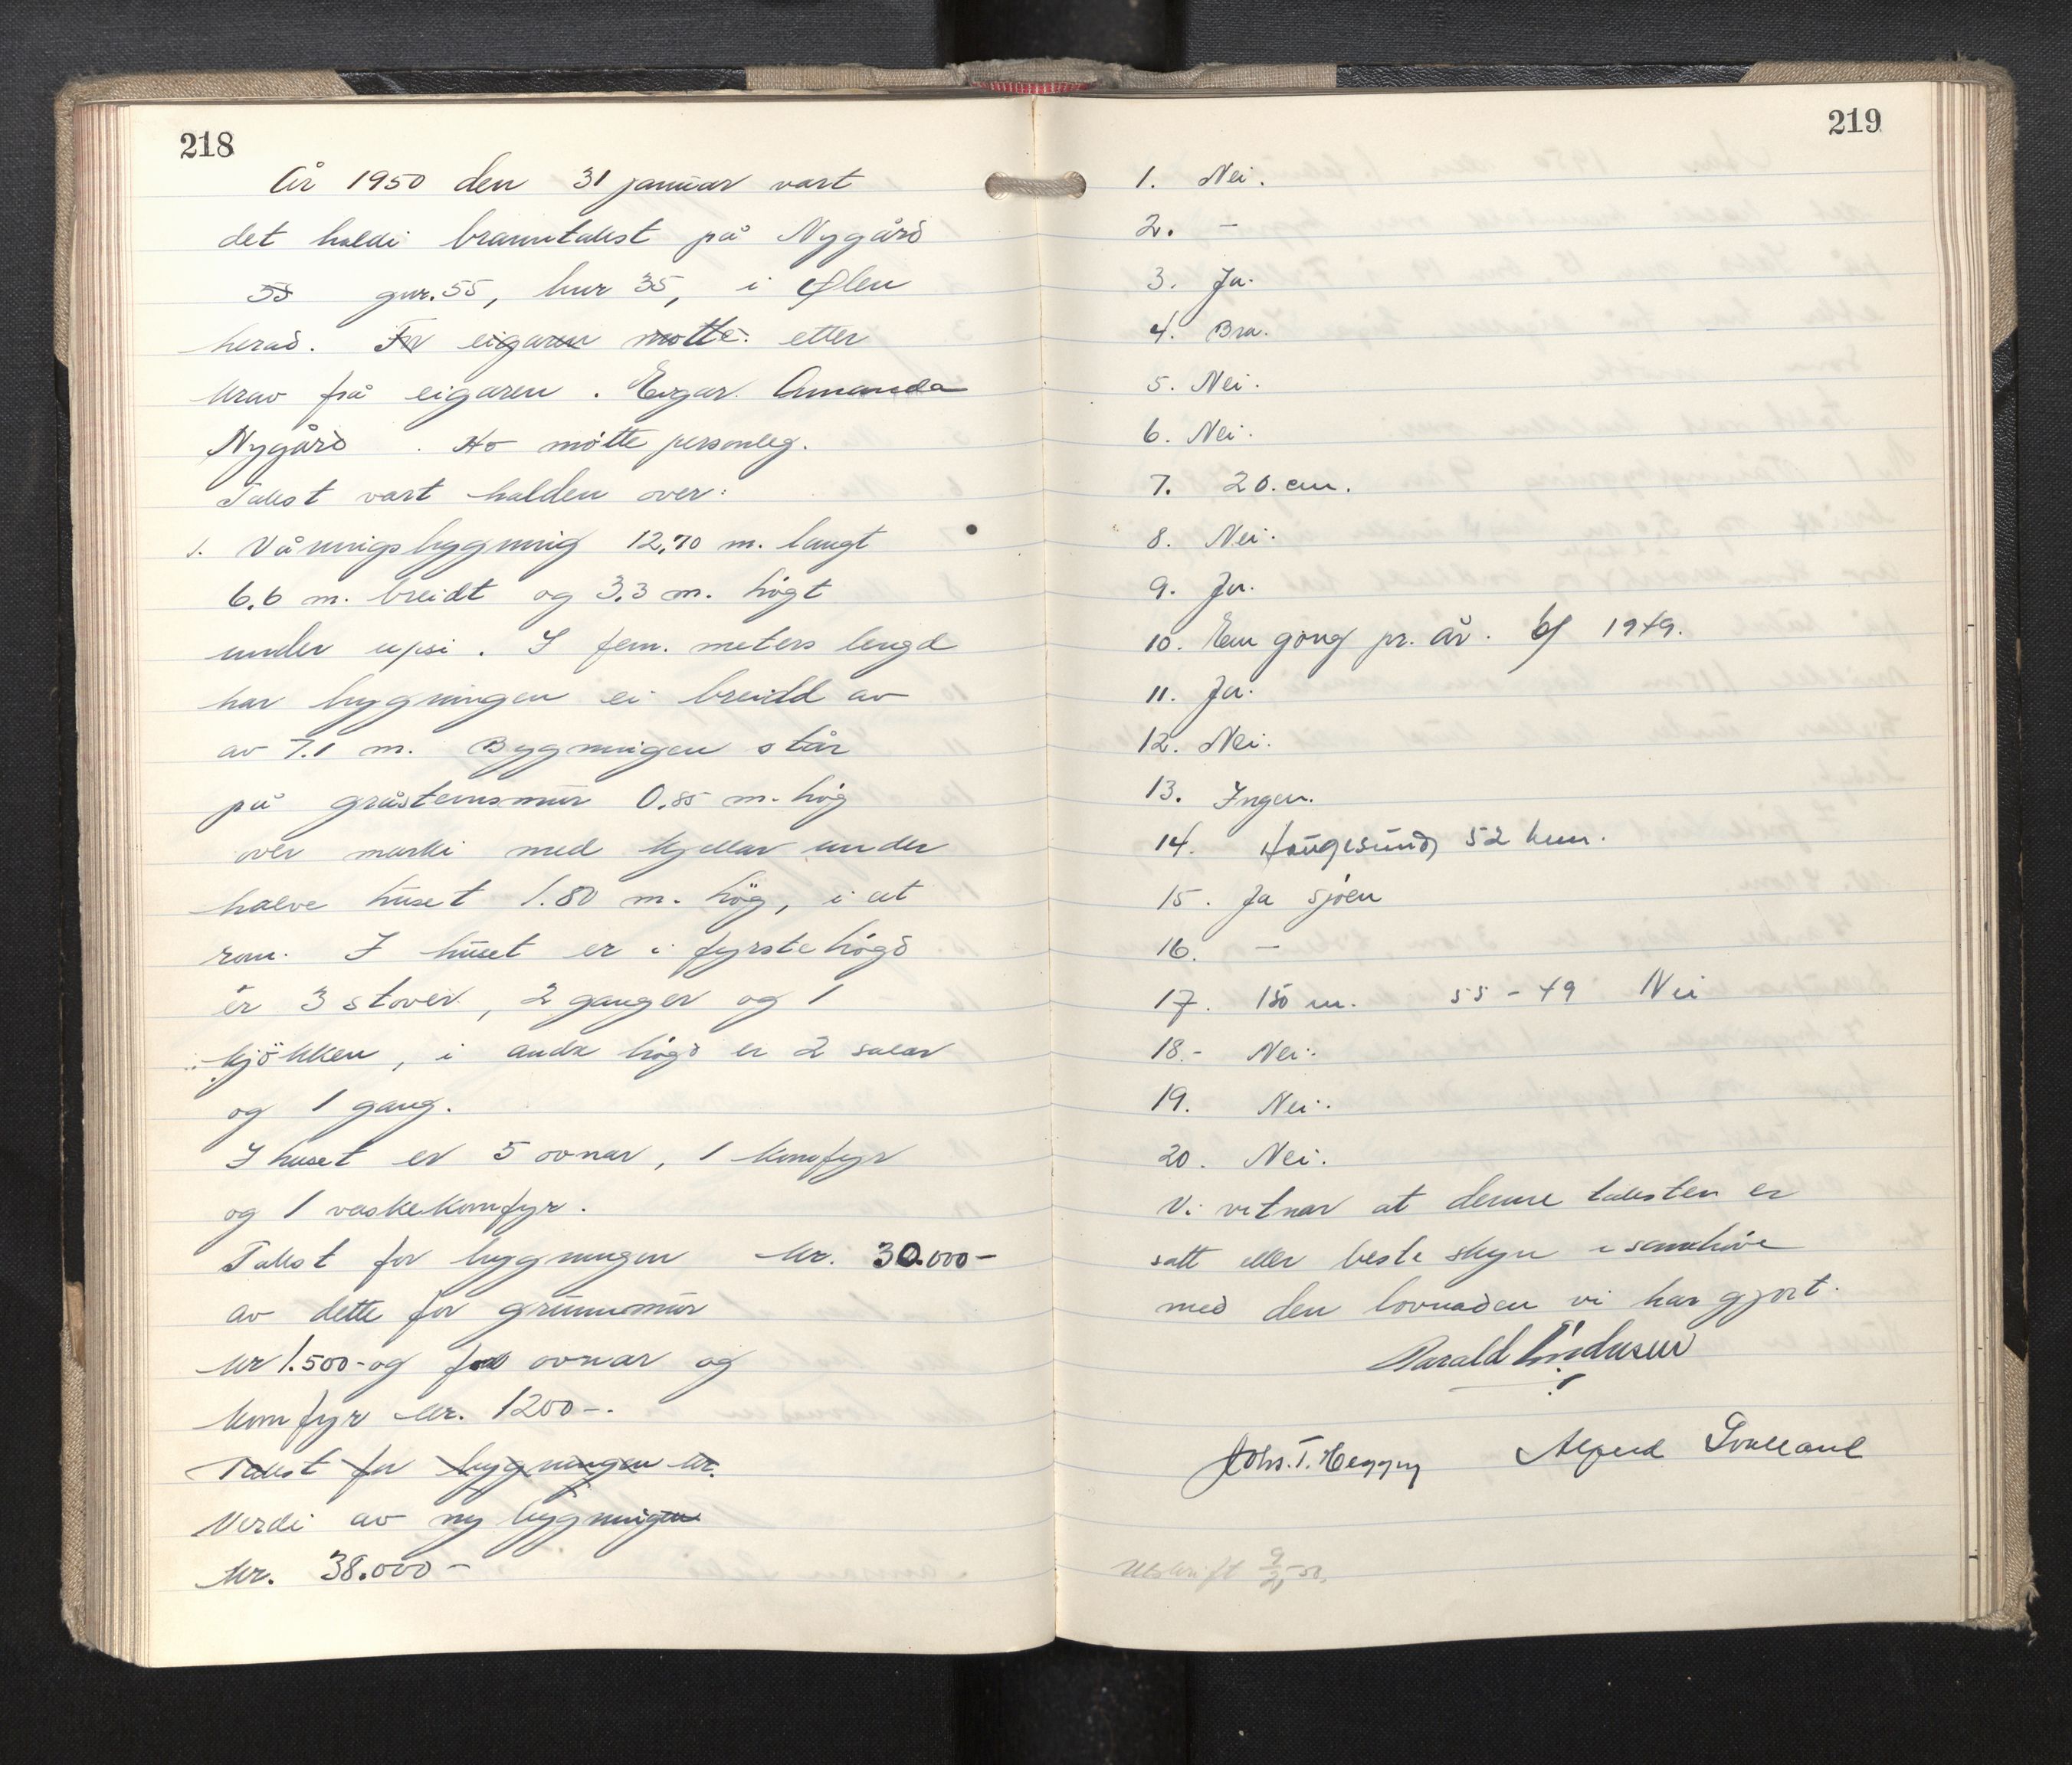 218
År 1950 den 31 januar vart
det haldi branntakst på Nygård
55 gnr. 55, bnr 35, i Ølen
herad. For eigaren møtte. etter
krav frå eigaren. Eigar. Amanda
Nygård. Ho møtte personleg.
Takst vart halden over:
1. Våningsbyggning 12,70 m. langt
6.6 m. breidt og 3.3 m. høgt
under upsi. I fem. meters lengd
har byggningen ei breidd av
av 7.1 m. Byggningen står
på gråsteinsmur 0.85 m. høg
over marki med kjellar under
halve huset 1.80 m. høg, i et
rom. I huset er i fyrste høgd
er 3 stover, 2 ganger og 1
kjøkken, i andx høgd er 2 salar
og 1 gang.
I huset er 5 ovnar, 1 komfyr
og 1 vaskekomfyr.
Takst for byggningen kr. 30.000-
av dette for grunnmur
kr 1.500- og for ovnar og
komfyr kr. 1200-.
Takst for byggningen kr.
Verdi av ny byggningen
kr. 38.000-
219
1. Nei.
2. -
3. Ja.
4. Bra.
5. Nei.
6. Nei.
7. 20. cm.
8. Nei.
9. Ja.
10. Ein gong pr. år. 1949.
11. Ja.
12. Nei.
13. Ingen.
14. Haugesund, 52 km.
15. Ja sjøen
16. -
17. 150 m. 55-49 Nei
18.- Nei.
19. Nei.
20. Nei.
Vi vitnar at denne taksten er
satt etter beste skyn i samhøve
med den lovnaden vi har gjort.
Harald
Johs. T. Heggøy Alfred
Utskrift 9/2, 50.